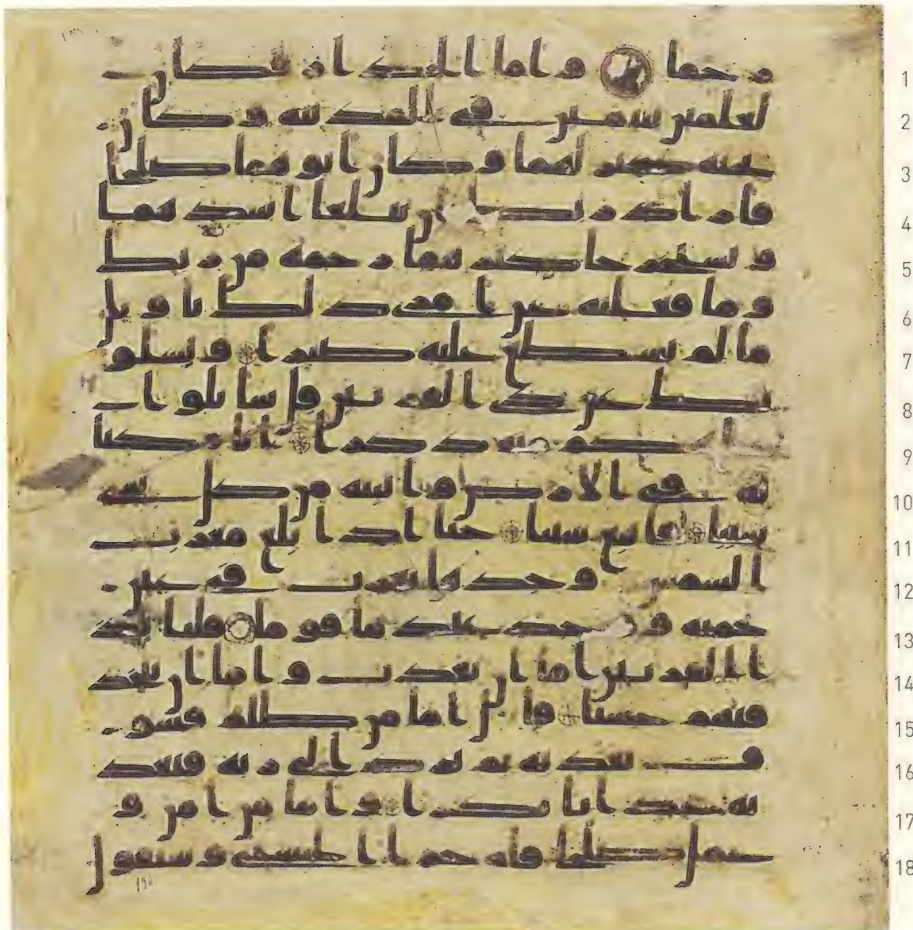 رحما واما الجدار فكان 1
لغلمين يتيمين في المدينه وكان 2
تحته كنز لهما وكان ابوهما صلحا 3
فاراد ربك ان يبلغا اشدهما 4
ويستخرجا كنزهما رحمه من ربك 5
وما فعلته عن امري ذلك تاويل 6
ما لم تسطع عليه صبرا ويسلو 7
نك عن ذي القرنين قل ساتلوا 8
عليكم منه ذكرا انا مكنا 9
له في الارض واتينه من كل شي 10
سببا فاتبع سببا حتا اذا بلغ مغرب 11
الشمس وجدها تغرب في عين 12
حميه ووجد عندها قوما قلنا يذ 13
ا القرنين اما ان تعذب واما ان تتخذ 14
فيهم حسنا قال اما من ظلم فسو 15
ف نعذبه ثم يرد الى ربه فيعذ 16
به عذابا نكرا واما من امن و 17
عمل صلحا فله جزاا الحسنى وسنقول 18